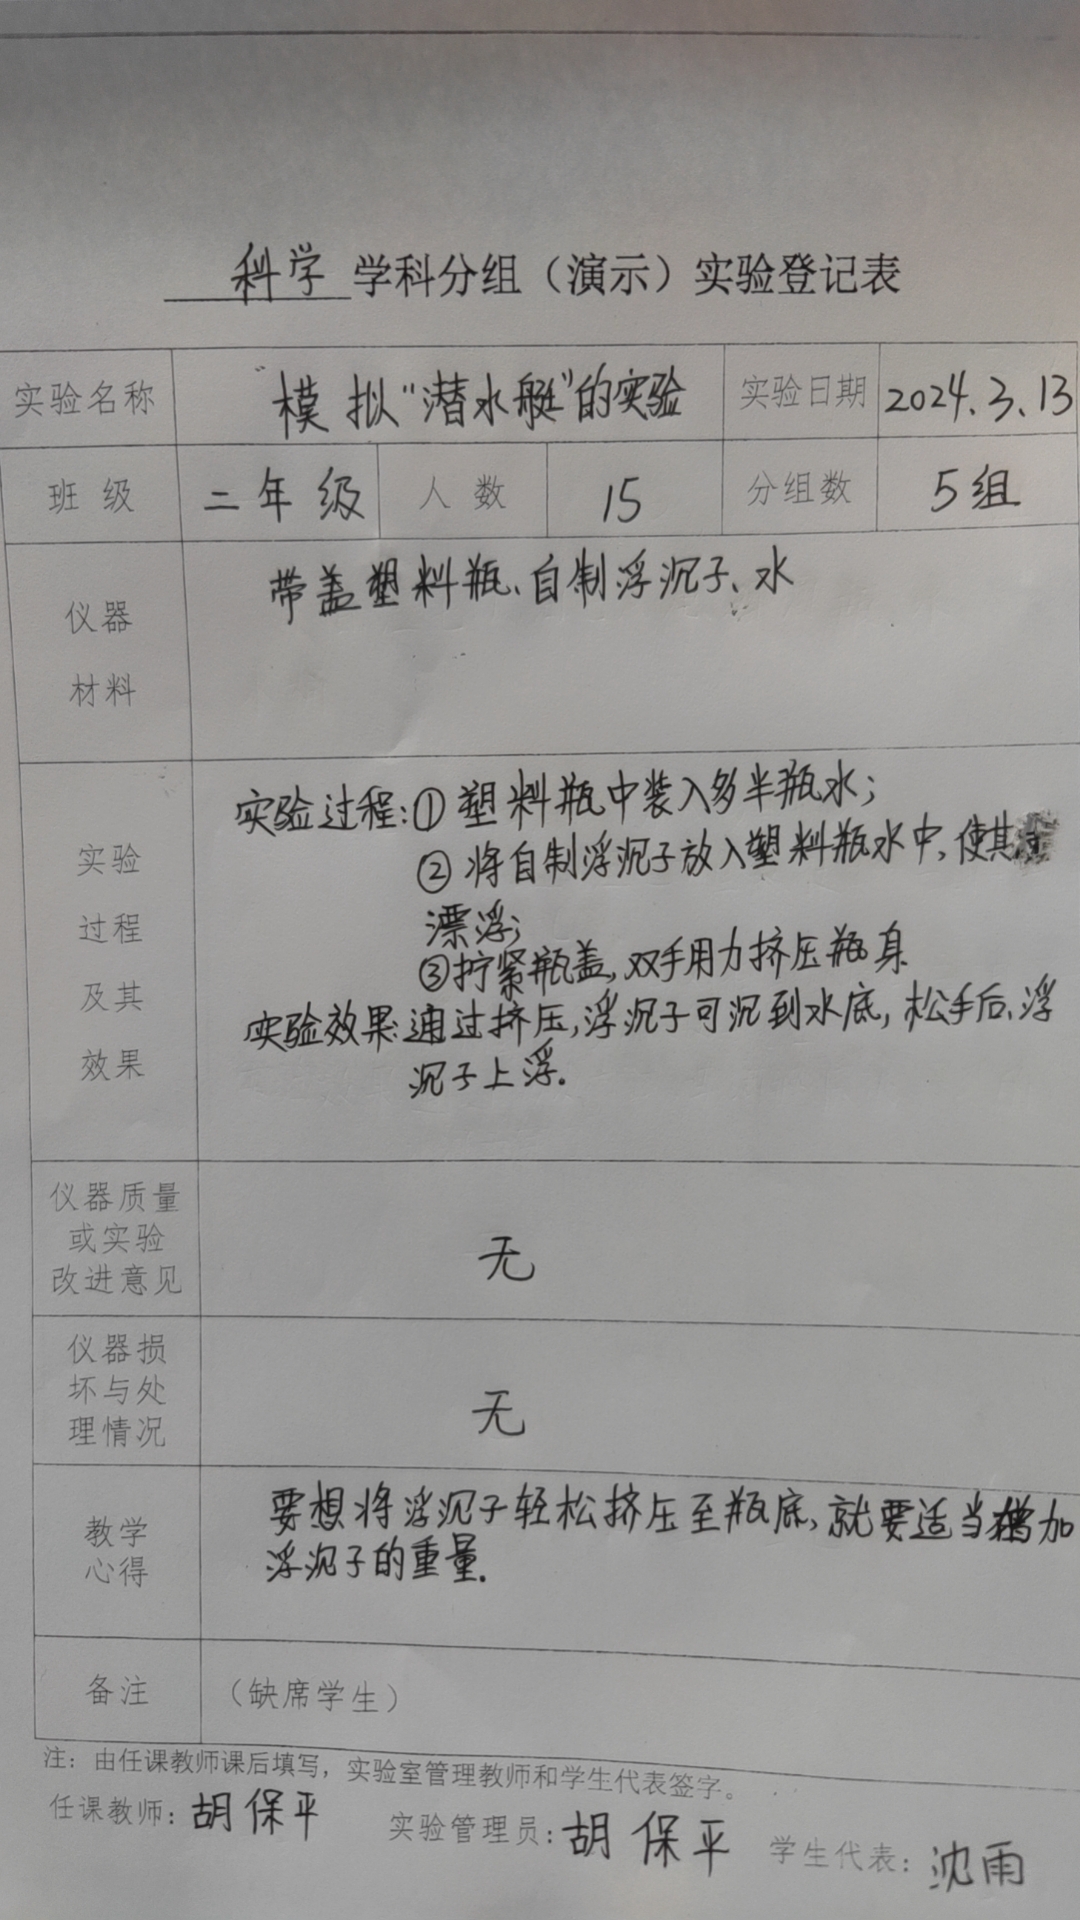 科学 学科分组（演示）实验登记表
实验名称 模拟“潜水艇”的实验 实验日期 2024.3.13
班级 二年级 人数 15 分组数 5组
仪器
材料
带盖塑料瓶、自制浮沉子、水
实验
过程
及其
效果
实验过程:①塑料瓶中装入多半瓶水;
②将自制浮沉子放入塑料瓶水中,使其
漂浮;
③拧紧瓶盖,双手用力挤压瓶身
实验效果:通过挤压,浮沉子可沉到水底,松手后,浮
沉子上浮.
仪器质量
或实验
改进意见
无
仪器损
坏与处
理情况
无
教学
心得
要想将浮沉子轻松挤压至瓶底,就要适当增加
浮沉子的重量.
备注 （缺席学生）
注：由任课教师课后填写，实验室管理教师和学生代表签字。
任课教师：胡保平 实验管理员：胡保平 学生代表：沈雨